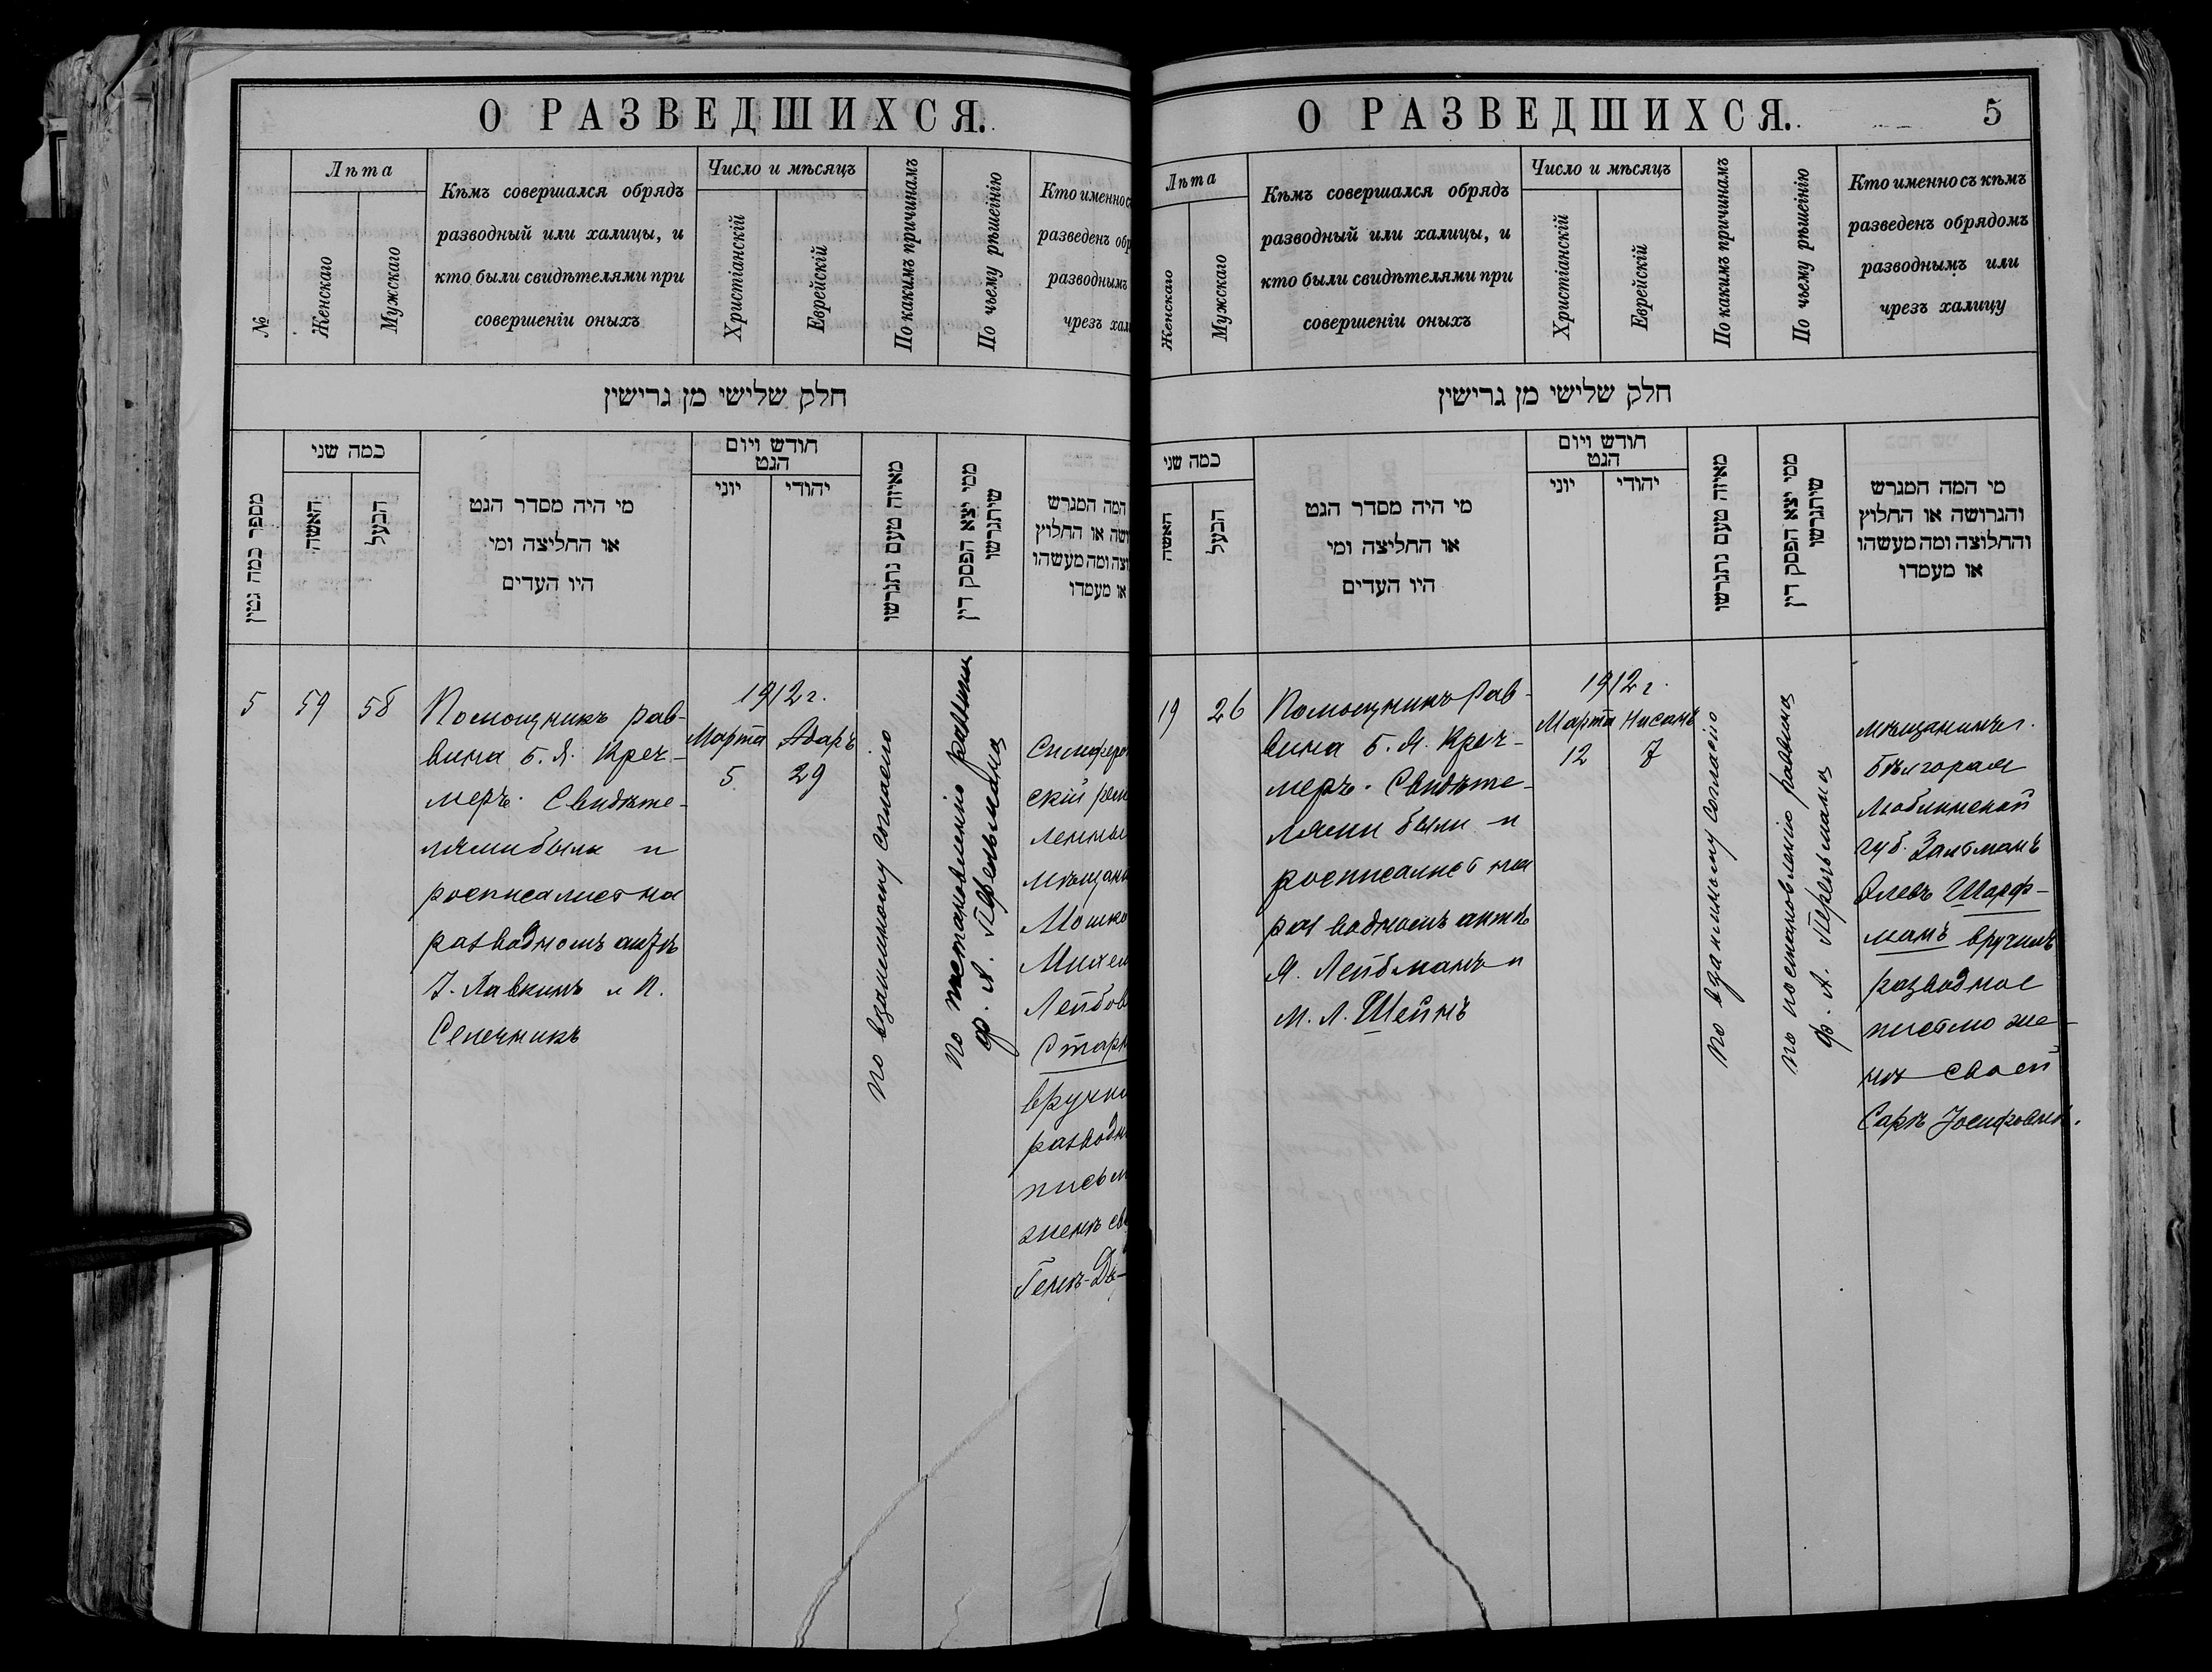 О РАЗВЕДШИХСЯ.
№
Лѣта
Женскаго
Мужскаго
Кѣмъ совершался обрядъ
разводный или халицы, и
кто были свидѣтелями при
совершеніи оныхъ
Число и мѣсяцъ
Христіанскій
Еврейскій
По какимъ причинамъ
По чьему рѣшенію
Кто именно с
разведенъ обр
разводнымъ
чрезъ хал
חלק שלישי מן גרישין
מספר כמה גטין
כמה שני
האשה
הבעל
מי היה מסדר הגט
או החליצה ומי
היו העדים
חודש ויום
הגט
יוני
יהודי
מאיזה טעם נתגרשו
ממי יצא הפסק דין
שיתגרשו
המה המגרש
ושה או החלוץ
וצה ומה מעשהו
או מעמדו
5
59
58
Помощникъ рав-
вина Б. Я. Креч-
меръ. Свидѣте-
лями были и
росписались на
разводномъ актѣ
І. Лавкинъ и П.
Селечникъ
1912 г.
Марта
5
Адаръ
29
По взаимному согласію
По постановленію раввина
Ф. А. Перельмана
Симферо
скій рем
ленны
мѣщани
Мошко
Михел
Лейбов
Старк
вручи
разводн
письм
женѣ св
Генѣ-Дв-
О РАЗВЕДШИХСЯ.
5
Лѣта
Женскаго
Мужскаго
Кѣмъ совершался обрядъ
разводный или халицы, и
кто были свидѣтелями при
совершеніи оныхъ
Число и мѣсяцъ
Христіанскій
Еврейскій
По какимъ причинамъ
По чьему рѣшенію
Кто именно съ кѣмъ
разведенъ обрядомъ
разводнымъ или
чрезъ халицу
חלק שלישי מן גרישין
כמה שני
האשה
הבעל
מי היה מסדר הגט
או החליצה ומי
היו העדים
חודש ויום
הגט
יוני
יהודי
מאיזה טעם נתגרשו
ממי יצא הפסק דין
שיתגרשו
מי המה המגרש
והגרושה או החלוץ
והחלוצה ומה מעשהו
או מעמדו
19
26
Помощникъ рав-
вина Б. Я. Креч-
меръ. Свидѣте-
лями были и
росписались на
разводномъ актѣ
Я. Лейбманъ и
М. Л. Шейнъ
1912 г.
Марта
12
Нисанъ
7
По взаимному согласію
По постановленію раввина
Ф. А. Перельмана
мѣщанинъ г.
Бѣлгорая
Люблинской
губ. Залманъ
Шарф-
манъ вручилъ
разводное
письмо же-
нѣ своей
Сарѣ Іосифовнѣ.